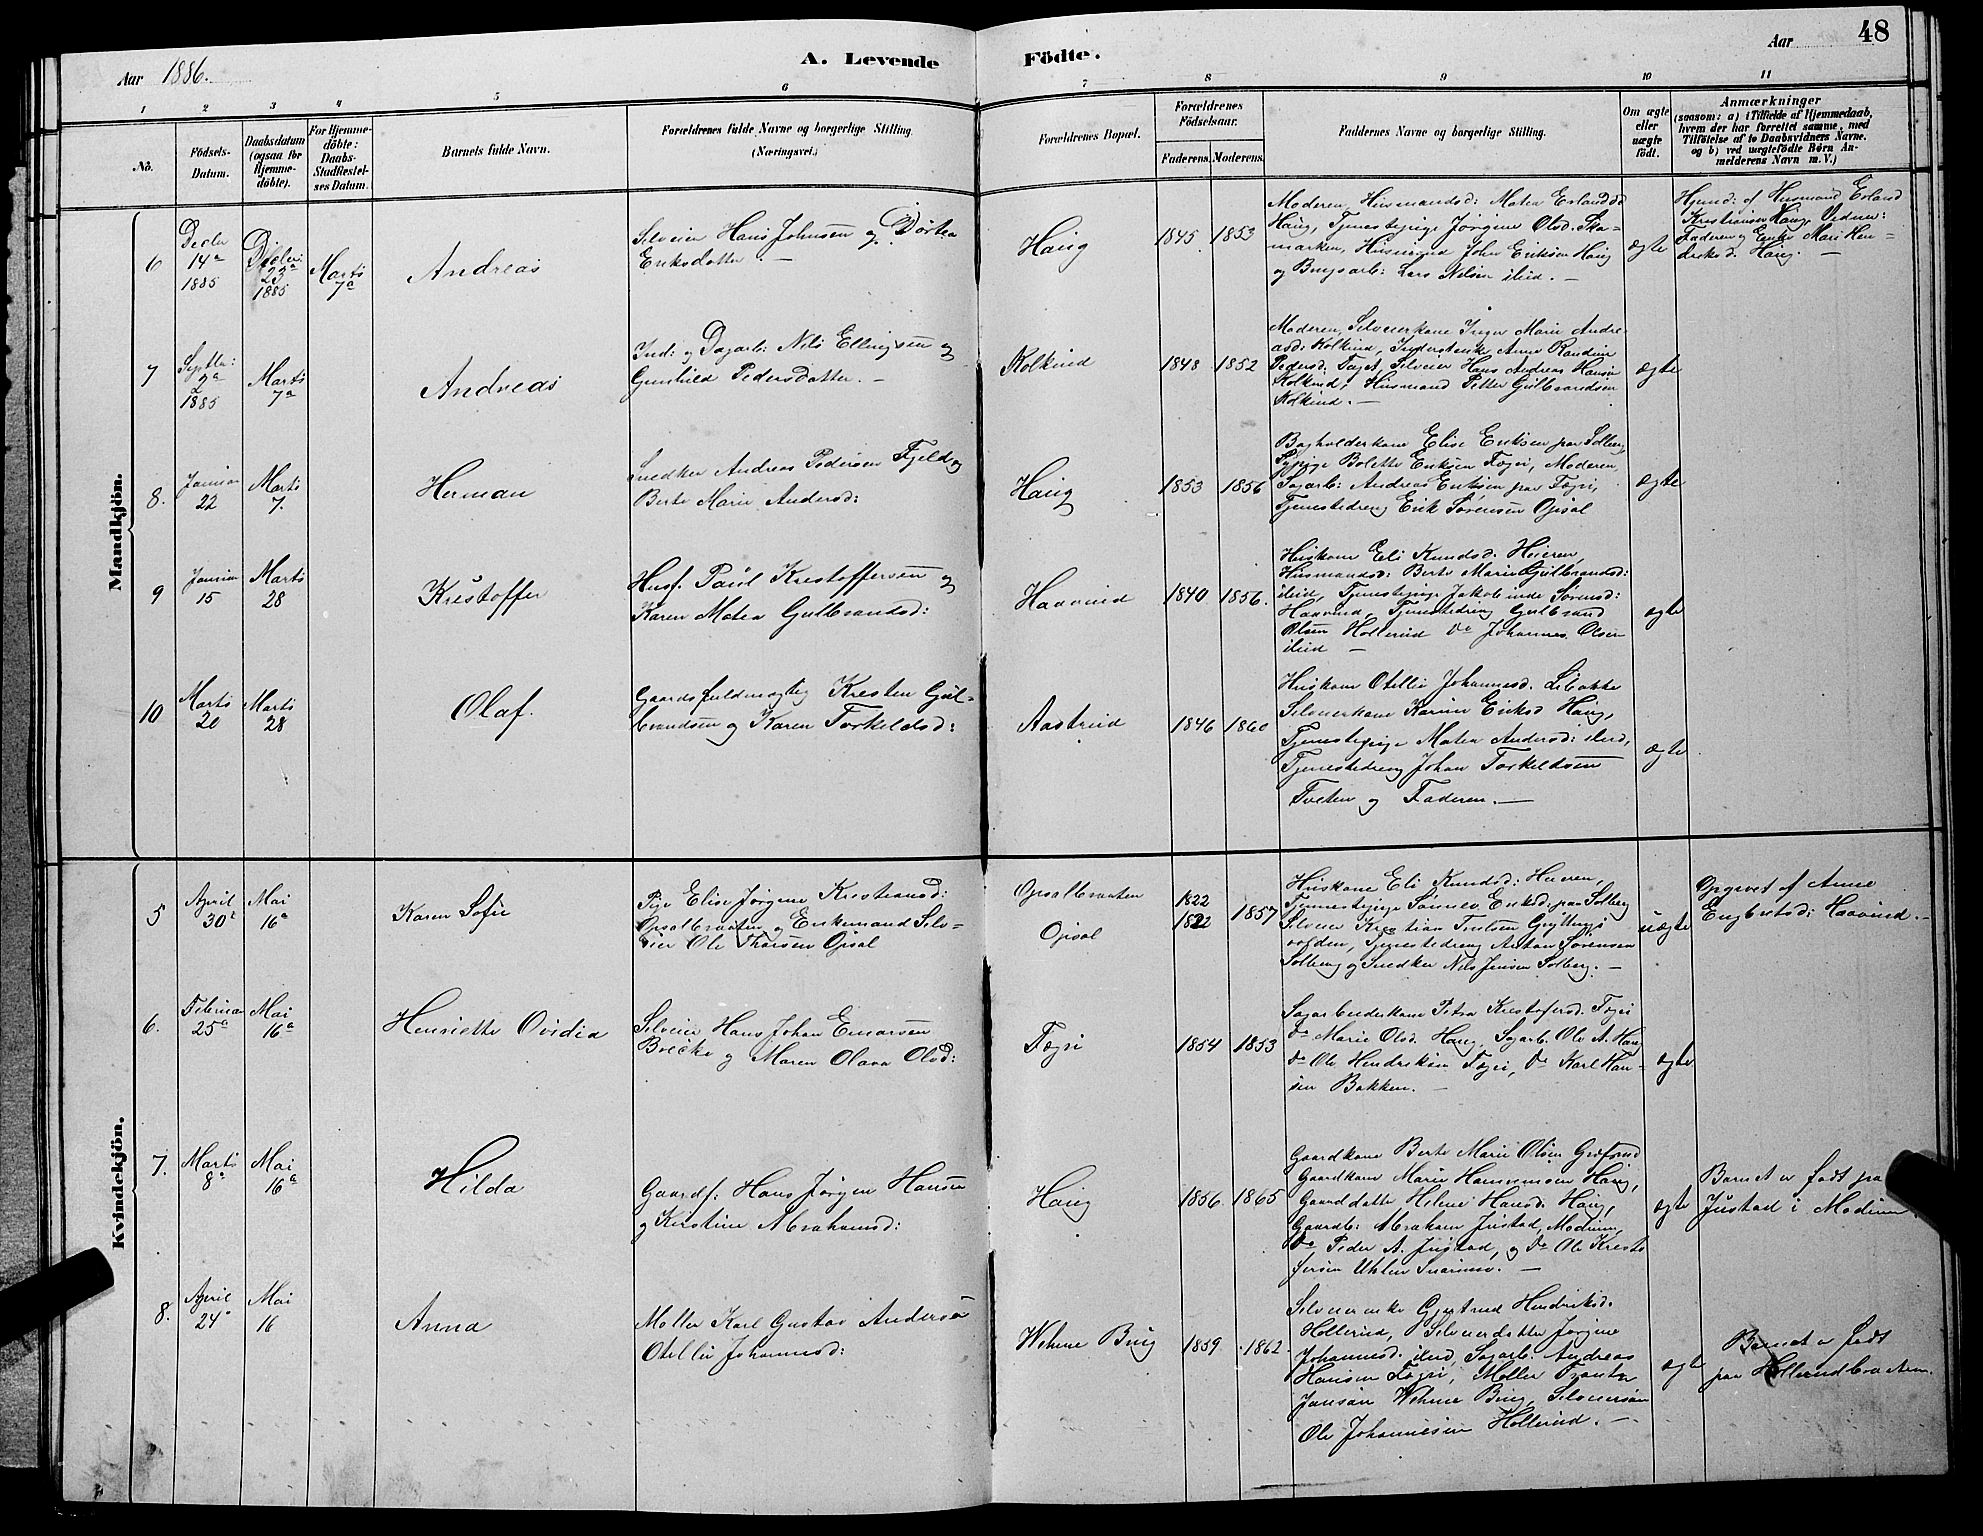 Aar 1886.
A. Levende
Födte.
Aar
48
1 2 3 4 5 6 7 8 9 10 11
No.
Födsels-
Datum.
Daabsdatum
(ogsaa for
Hjemme-
döbte).
For Hjemme-
döbte:
Daabs-
Stadfæstel-
ses Datum.
Barnets fulde Navn.
Forældrenes fulde Navne og borgerlige Stilling.
(Næringsvei.)
Forældrenes Bopæl.
Forældrenes
Födselsaar.
Faderens. Moderens.
Faddernes Navne og borgerlige Stilling.
Om ægte
eller
uægte
födt.
Anmærkninger
(saasom: a) i Tilfælde af Hjemmedaab,
hvem der har forrettet samme, med
Tilföielse af to Daabsvidners Navne.
og b) ved uægtefödte Börn An-
melderens Navn m.V.)
Mandkjön.
6
Decbr
14de
1885
Decbr:
23de
1885
Marts
7de
Andreas
Selveier Hans Johnsen og Dörtea
Eriksdatter. —
Haug
1845 1853
Moderen, Husmandsd: Matea Erlandsd
Haug, Tjenestepige Jörgine Olsd. Ska-
marken, Husmand John Eriksen Haug
og Brugsarb: Lars Nilsen ibid. —
ægte
Hjmd: af Husmand Erland
Kristiansen Haug. Vidner:
Faderen og Enke Mari Hen-
driksd. Haug. —
7
Septbr:
2de
1885
Marts
7de
Andreas
Ind: og Dagarb: Nils Ellingsen og
Gunhild Pedersdatter. —
Kolkind
1848 1852
Moderen, Selveierkone Inger Marie Andre-
asd: Kolkind, Inderstenke Anne Randine
Pedersd. Faget, Selveier Hans Andreas Hansen
Kolkind, Husmand Petter Gulbrandsen
Kolkind. —
ægte
8.
Januar
22
Marts
7.
Herman
Snedker Andreas Pedersen Fjeld og
Berte Marie Andersd:
Haug
1853 1856
Bogholderkone Elise Eriksen paa Solberg,
Sypige Bolette Eriksen Fægri, Moderen,
Sagarb: Andreas Eriksen paa Fægri,
Tjenestedreng Erik Sörensen Opsal
ægte
9
Januar
15
Marts
28
Kristoffer
Husf. Paul Kristoffersen og
Karen Matea Gulbrandsd:
Haavind
1840 1856.
Huskone Eli Knudsd. Heieren,
Husmandsd: Berte Marie Gulbrandsd:
ibid, Tjenestepige Jakobinde Sorensd:
Haavind, Tjenestedreng Gulbrand
Olsen Hollerud Do Johannes Olsen
ibid —
ægte
10
Marts
20
Marts
28
Olaf.
Gaardsfuldmægtig Kresten Gul-
brandsen og Karen Torkeldsd:
Aastrud
1846 1860
Huskone Otellie Johannesd. Libakke
Selveierkone Karine Eriksd Haug,
Tjenestepige Matea Andersd: ibid,
Tjenestedreng Johan Torkeldsen
Tveten og Faderen. —
ægte
Kvindekjön.
5
April
30te
Mai
16de
Karen Sofie
Pige Elise Jörgine Kristiansd:
Opsalbraaten og Enkemand Selv-
eier Ole Thorsen Opsal
Opsalbraaten
Opsal
1822
1822 1857
Huskone Eli Knudsd: Heieren,
Tjenestepige Sönnev Eriksd. paa Solberg
Selveier Kristian
Tjenestedreng Anton Sörensen
Solberg og Snedker Nils Jensen Solberg. —
uægte
Opgivet af Anne
Engbretsd: Haavind. —
6.
Februar
25de
Mai
16de
Henriette Ovidia
Selveier Hans Johan Einarsen
Brecke og Maren Olava Olsd:
Fægri
1854 1853
Sagarbeiderkone Petra Kristofersd. Fægri
Do Marie Olsd. Haug, Sagarb. Ole A. Haug
Do Ole Hendriksen Fægri, Do Karl Han-
sen Bakken. —
ægte
7.
Marts
8de
Mai
16de
Hilda
Gaardf: Hans Jörgen Hansen
og Kirstine Abrahamsd:
Haug
1856 1865
Gaardkone Berte Marie Olsen Grefsrud
Gaardkone Marie Haug,
Gaarddatter Helene Hansd. Haug,
Gaardb: Abraham Justad, Modum,
Do Peder A. Justad, og Do Ole Krest-
fersen Uhlen Snarum. —
ægte
Barnet er födt paa
Justad i Modum
8.
April
24de
Mai
16
Anna
Möller Karl Gustav Andersen
Otellie Johannesd:
Wehme Brug
1859 1862
Selveierenke Gjertrud Hendriksd.
Hollerud, Selveierdatter Jörgine
Johannesd. ibid, Sagarb. Andreas
Hansen Fægri, Möller Frants
Jansen Wehme Brug, Selveiersön
Ole Johannesen Hollerud. —
ægte
Barnet er födt
paa Hollerudbraaten.